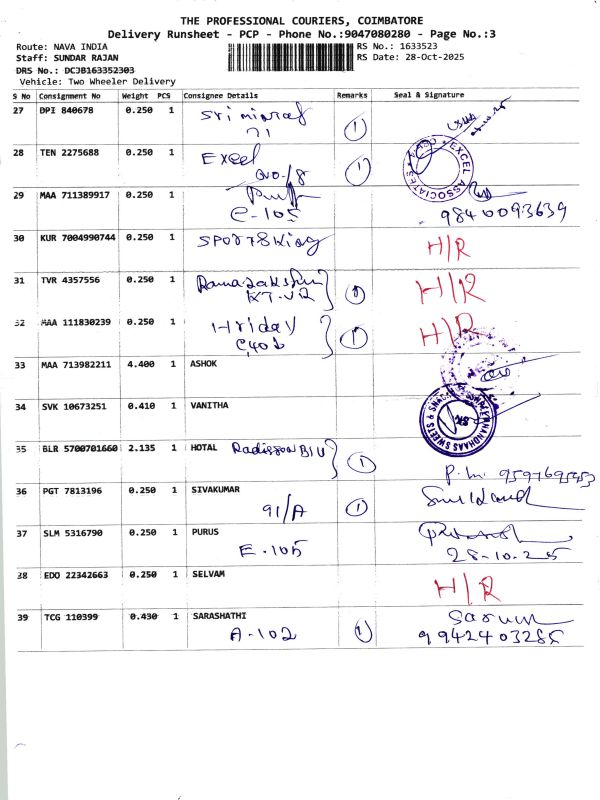 THE PROFESSIONAL COURIERS, COIMBATORE
Delivery Runsheet - PCP - Phone No.:9047080280 - Page No.:3
Route: NAVA INDIA RS No.: 1633523
Staff: SUNDAR RAJAN RS Date: 28-Oct-2025
DRS No.: DCJB163352303
Vehicle: Two Wheeler Delivery
S No Consignment No Weight PCS Consignee Details Remarks Seal & Signature
27 DPI 840678 0.250 1
71 1
28 TEN 2275688 0.250 1 Excel 1
EXCEL ASSOCIATES
29 MAA 711389917 0.250 1
C-105 9840093639
30 KUR 7004990744 0.250 1 SPORTSKing H/R
31 TVR 4357556 0.250 1 H/R
32 MAA 111830239 0.250 1 Hriday 1 H/R
C402
33 MAA 713982211 4.400 1 ASHOK
34 SVK 10673251 0.410 1 VANITHA
35 BLR 5700701660 2.135 1 HOTAL Radisson Blu 1
P.M. 9597695953
36 PGT 7813196 0.250 1 SIVAKUMAR 1
91/A
37 SLM 5316790 0.250 1 PURUS
E-105 28-10-25
38 EDO 22342663 0.250 1 SELVAM H/R
39 TCG 110399 0.430 1 SARASHATHI
A-102 1 9942403285